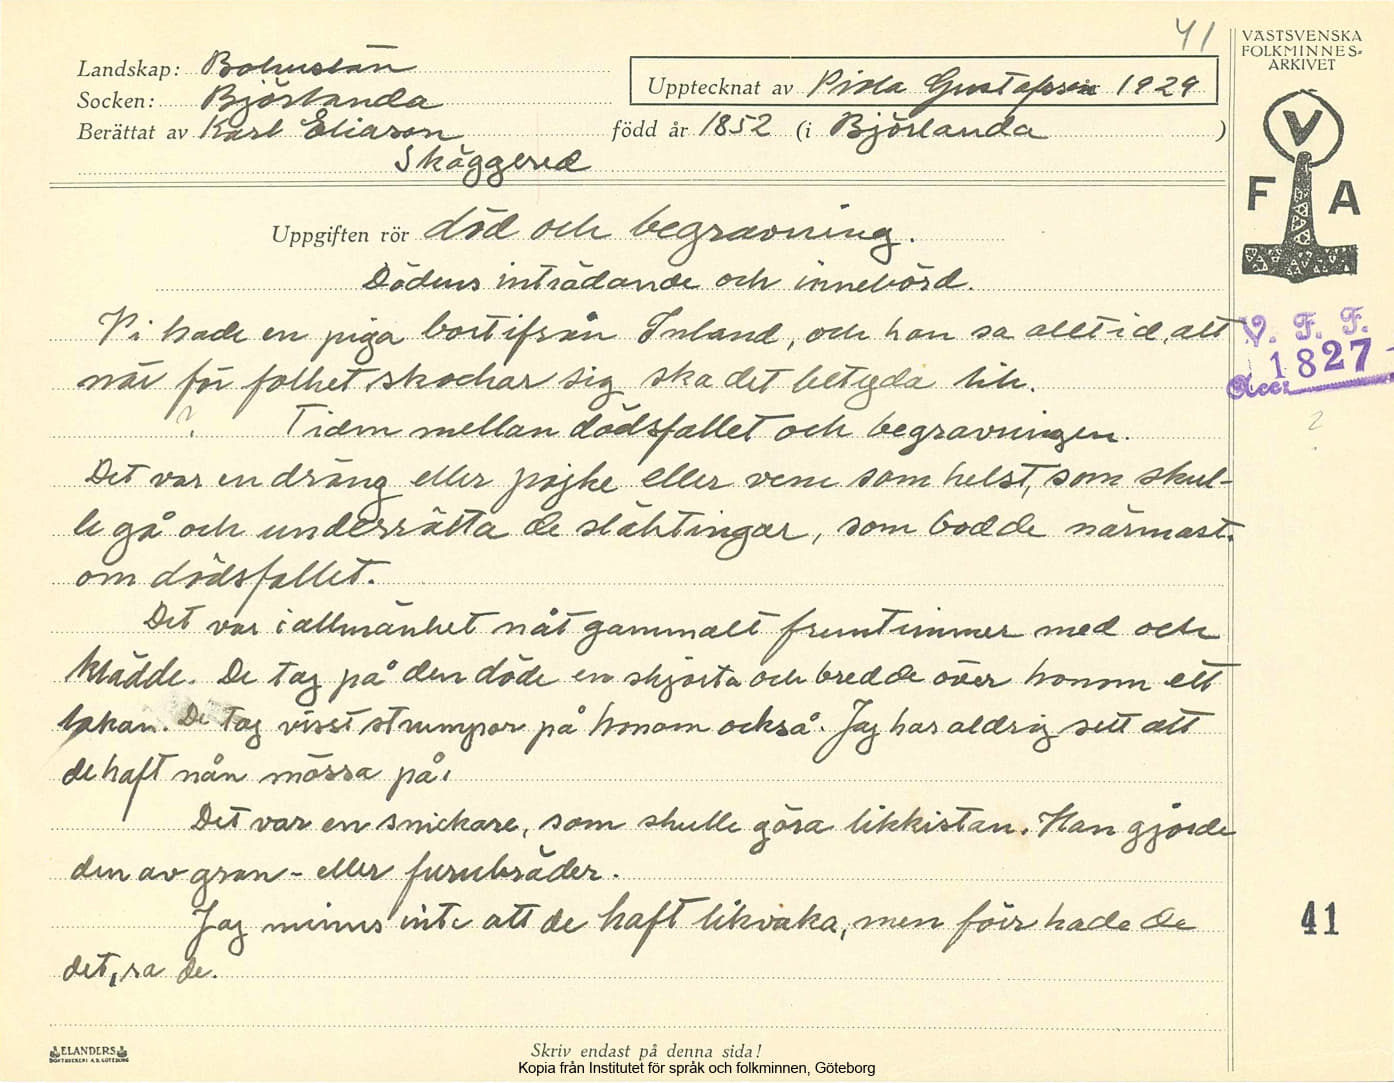 41
VÄSTSVENSKA
FOLKMINNES-
ARKIVET
Landskap: Bohuslän
Socken: Björlanda
Upptecknat av Gustafsson 1929
Berättat av Karl Eliason född år 1852 (i Björlanda )
Skäggered
V
F A
Uppgiften rör död och begravning.
Dödens inträdande och innebörd.
Vi hade en piga bortifrån Inland, och hon sa alltid, att
när för folket skochar sig ska det betyda lik.
V. F. F.
1827
Acc.
?
? Tiden mellan dödsfallet och begravningen.
Det var en dräng eller pojke eller vem som helst, som skul-
le gå och underrätta de släktingar, som bodde närmast.
om dödsfallet.
Det var i allmänhet nåt gammalt fruntimmer med och
klädde. De tog på den döde en skjorta och bredde över honom ett
lakan. De tog visst strumpor på honom också. Jag har aldrig sett att
de haft nån mössa på.
Det var en snickare, som skulle göra likkistan. Han gjorde
den av gran- eller furubräder.
Jag minns inte att de haft likvaka, men förr hade de
det, sa de.
41
ELANDERS
BOKTRYCKERI A.B. GÖTEBORG
Skriv endast på denna sida!
Kopia från Institutet för språk och folkminnen, Göteborg